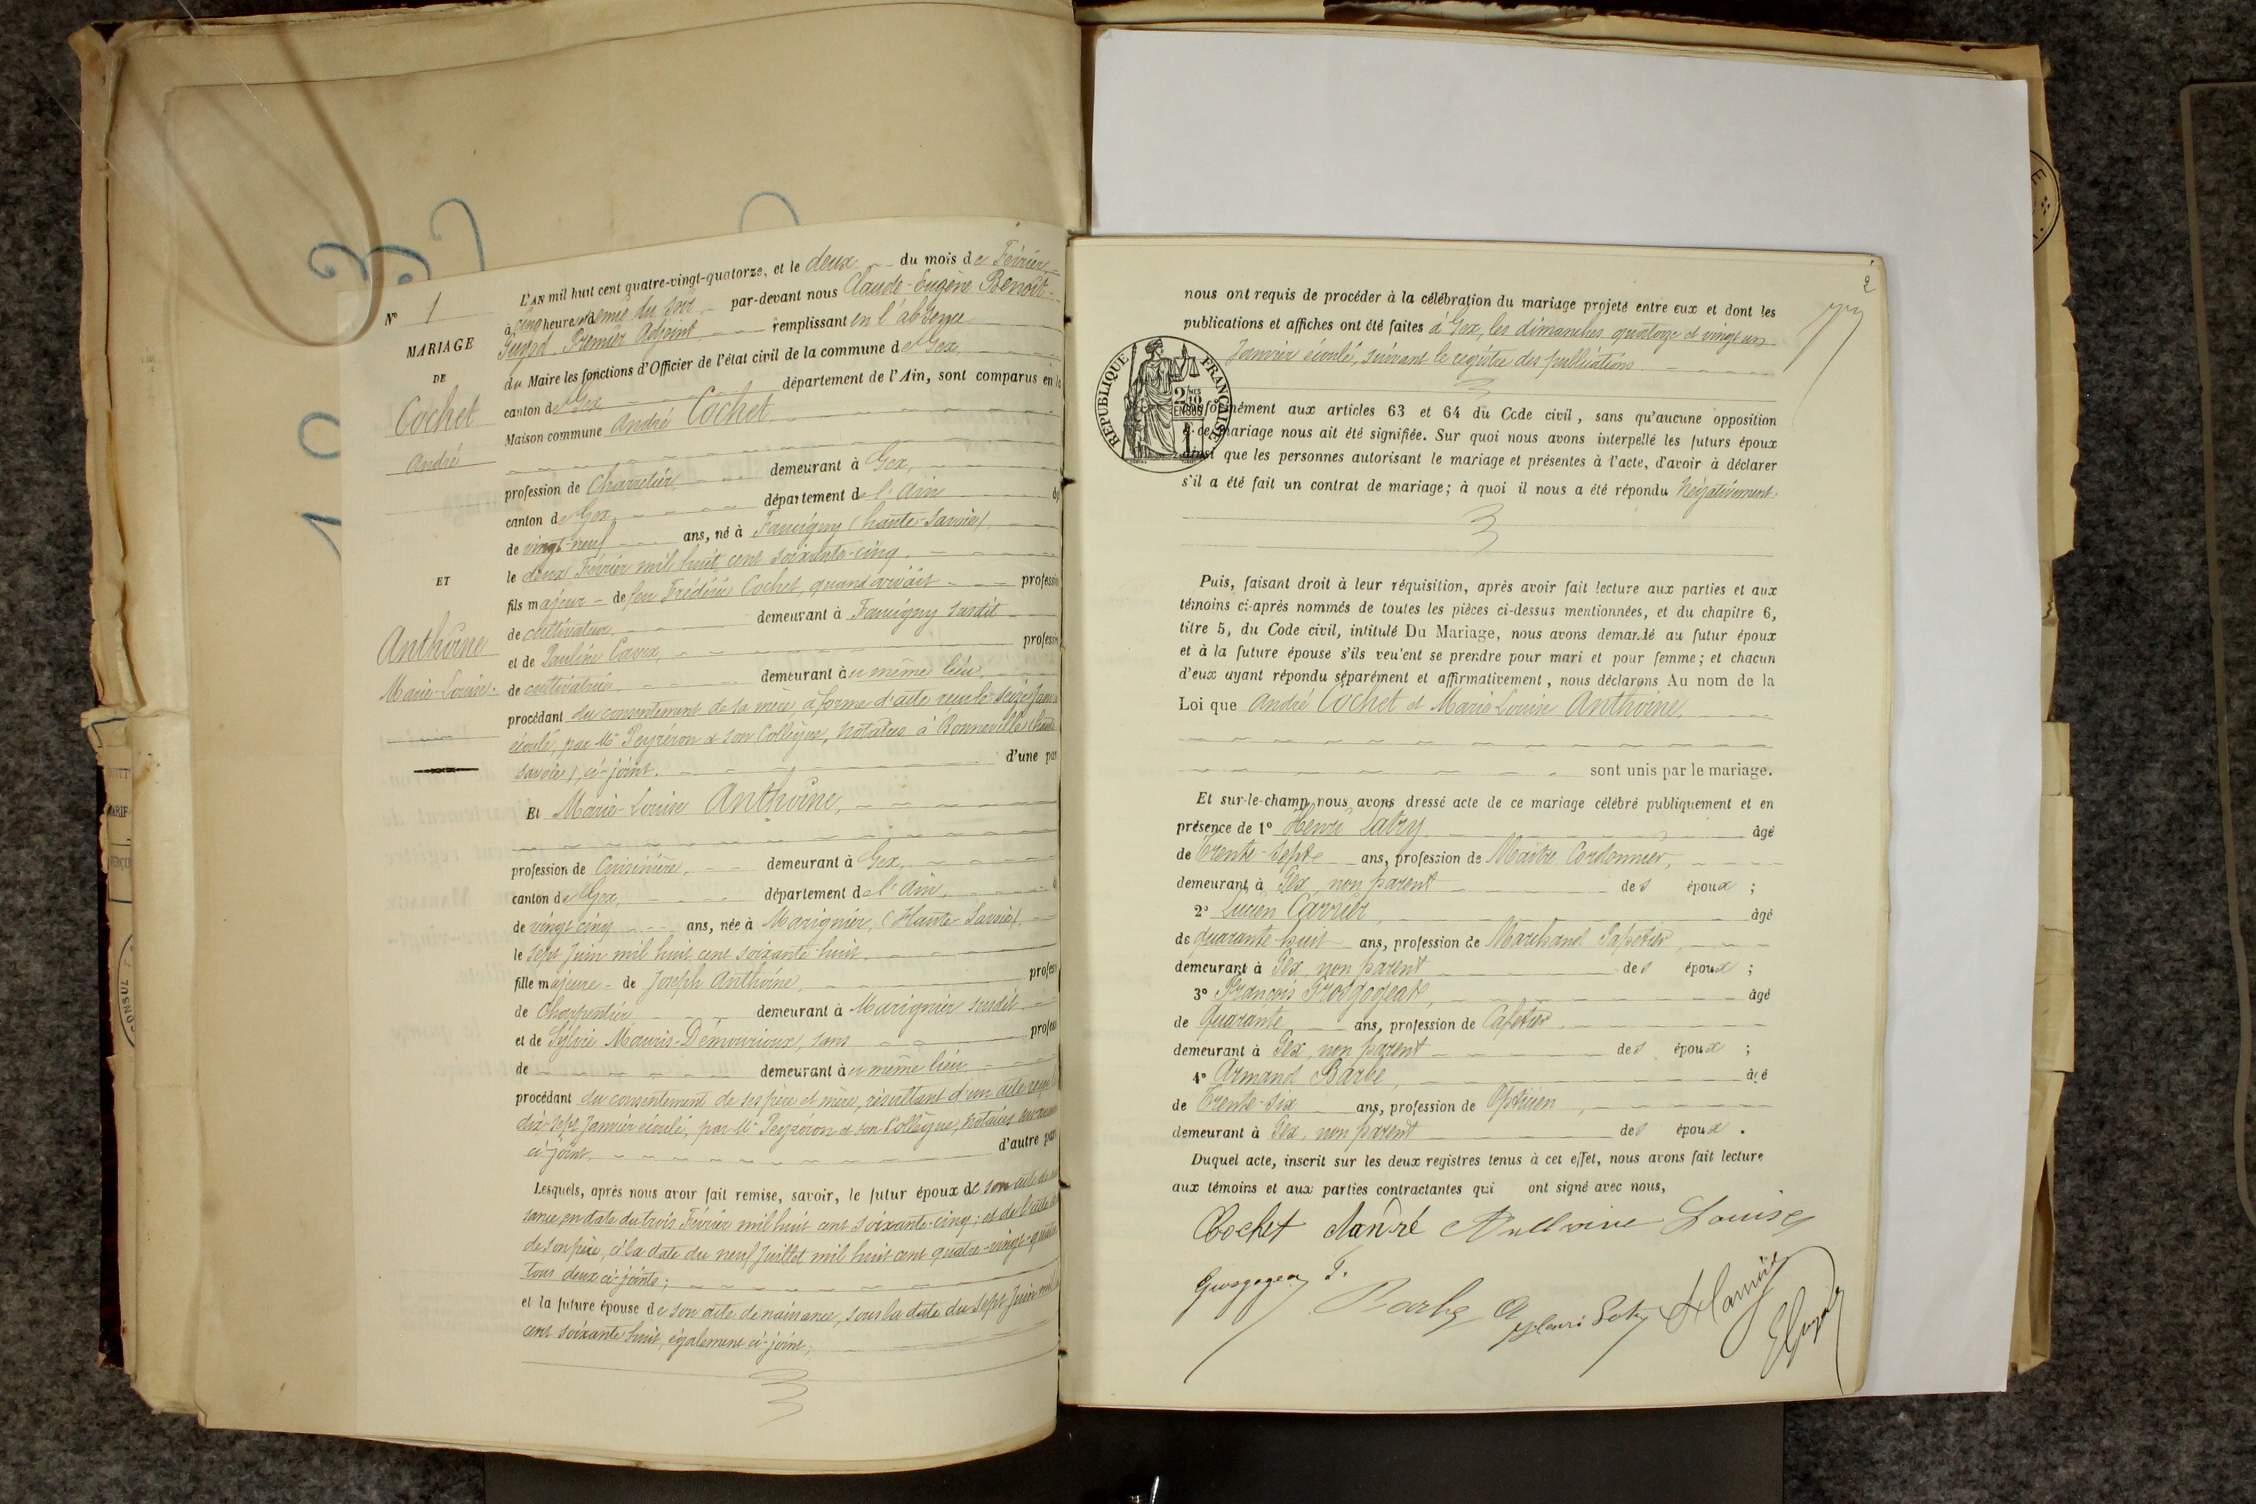 N° 1
MARIAGE
DE
Cochet
André
ET
Anthoine
Marie-Louise.
L'AN mil huit cent quatre-vingt-quatorze, et le deux du mois de Février
à cinq heures et demie du soir par-devant nous Claude-Eugène Benoit
Premier Adjoint, remplissant en l'absence
du Maire les fonctions d'Officier de l'état civil de la commune de Gex,
canton de Gex département de l'Ain, sont comparus en la
Maison commune André Cochet
profession de Charretier demeurant à Gex,
canton de Gex département de l'Ain
de vingt-neuf ans, né à Faucigny (haute-Savoie)
le deux Février mil huit cent soixante-cinq.
fils majeur de feu Frédéric Cochet, quand vivait profession
de cultivateur demeurant à Faucigny susdit
et de Pauline profession
de cultivatrice demeurant au même lieu
procédant du consentement de sa mère à forme d'acte reçu le seize Janvier
écoulé, par Me Peyréron & son Collègue, notaires à Bonneville (haute
savoie), ci-joint. d'une part
Et Marie-Louise Anthoine,
profession de Cuisinière, demeurant à Gex,
canton de Gex, département de l'Ain,
de vingt cinq ans, née à Marignier, (Haute-Savoie)
le sept Juin mil huit cent soixante-huit.
fille majeure de Joseph Anthoine, profession
de Charpentier demeurant à Marignier susdit
et de Sylvie Mauris-Demourioux, sans profession
de demeurant au même lieu
procédant du consentement de ses père et mère, résultant d'un acte reçu le
dix-sept Janvier écoulé, par Me Peyréron & son Collègue, notaires
ci-joint. d'autre part
Lesquels, après nous avoir fait remise, savoir, le futur époux de son acte de nais
sance en date du trois Février mil huit cent soixante-cinq; et de l'acte de
de son père, à la date du neuf Juillet mil huit cent quatre-vingt-quatre
tous deux ci-joints;
et la future épouse de son acte de naissance, sous la date du sept Juin mil
cent soixante huit, également ci-joint;
2
nous ont requis de procéder à la célébration du mariage projeté entre eux et dont les
publications et affiches ont été faites à Gex, les dimanches quatorze et vingt un
Janvier écoulé, suivant le registre des publications
RÉPUBLIQUE FRANÇAISE
conformément aux articles 63 et 64 du Code civil, sans qu'aucune opposition
à ce mariage nous ait été signifiée. Sur quoi nous avons interpellé les futurs époux
ainsi que les personnes autorisant le mariage et présentes à l'acte, d'avoir à déclarer
s'il a été fait un contrat de mariage; à quoi il nous a été répondu Négativement.
Puis, faisant droit à leur réquisition, après avoir fait lecture aux parties et aux
témoins ci-après nommés de toutes les pièces ci-dessus mentionnées, et du chapitre 6,
titre 5, du Code civil, intitulé Du Mariage, nous avons demandé au futur époux
et à la future épouse s'ils veulent se prendre pour mari et pour femme; et chacun
d'eux ayant répondu séparément et affirmativement, nous déclarons Au nom de la
Loi que André Cochet et Marie-Louise Anthoine,
sont unis par le mariage.
Et sur-le-champ nous avons dressé acte de ce mariage célébré publiquement et en
présence de 1° Henri Satry âgé
de Trente-Sept ans, profession de Maître Cordonnier,
demeurant à Gex, non parent des époux;
2° Lucien Carrier, âgé
de quarante-huit ans, profession de Marchand Papetier,
demeurant à Gex, non parent des époux;
3° François Grosgogeat, âgé
de Quarante ans, profession de Cafetier
demeurant à Gex, non parent des époux;
4° Armand Barbe, âgé
de Trente-Six ans, profession de Opticien,
demeurant à Gex, non parent des époux.
Duquel acte, inscrit sur les deux registres tenus à cet effet, nous avons fait lecture
aux témoins et aux parties contractantes qui ont signé avec nous,
Cochet André Anthoine Louise
Barbe A Henri